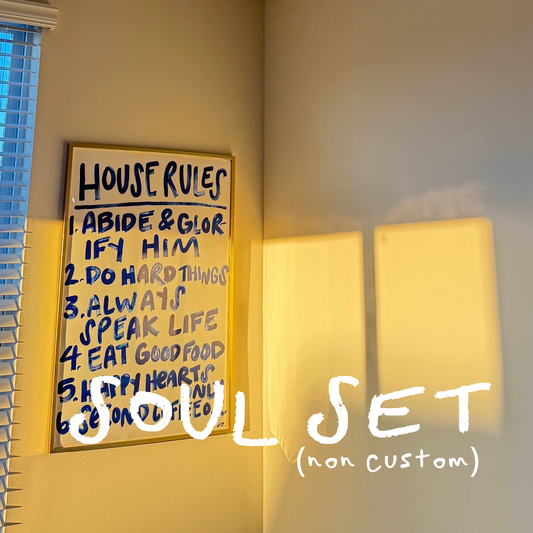 HOUSE RULES
1. ABIDE & GLOR-
IFY HIM
2. DO HARD THINGS
3. ALWAYS
SPEAK LIFE
4. EAT GOOD FOOD
5. HAPPY HEARTS
ONLY
6.
SOUL SET
(non custom)